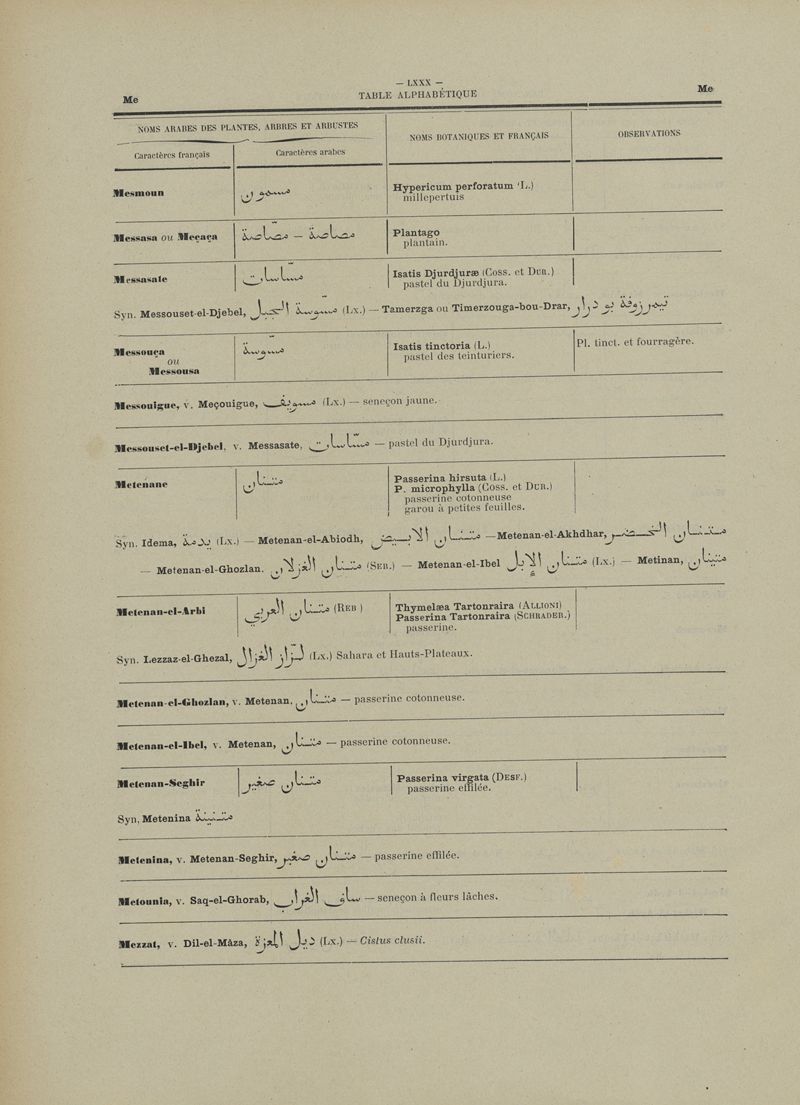 — LXXX —
Me TABLE ALPHABÉTIQUE Me
NOMS ARABES DES PLANTES, ARBRES ET ARBUSTES
NOMS BOTANIQUES ET FRANÇAIS
OBSERVATIONS
Caractères français
Caractères arabes
Mesmoun مسمون Hypericum perforatum (L.)
millepertuis
Messasa ou Meçaça مصاصة — مصاصة Plantago
plantain.
Messasate مساسات Isatis Djurdjuræ (Coss. et Dur.)
pastel du Djurdjura.
Syn. Messouset-el-Djebel, مسوسة الجبل (Lx.) — Tamerzga ou Timerzouga-bou-Drar, تيمرزوقة بو درار
Messouça مسوسة Isatis tinctoria (L.) Pl. tinct. et fourragère.
ou pastel des teinturiers.
Messousa
Messouigue, v. Meçouigue, مسويقـ (Lx.) — seneçon jaune.
Messouset-el-Djebel, v. Messasate, مساسات — pastel du Djurdjura.
Metenane متنان Passerina hirsuta (L.)
P. microphylla (Coss. et Dur.)
passerine cotonneuse
garou à petites feuilles.
Syn. Idema, يدمة (Lx.) — Metenan-el-Abiodh, متنان الابيض — Metenan-el-Akhdhar, متنان الخضر
— Metenan-el-Ghozlan, متنان الغزلان (Seb.) — Metenan-el-Ibel متنان الابل (Lx.) — Metinan, متينان
Metenan-el-Arbi متنان العربي (Reb) Thymelæa Tartonraira (Allioni)
Passerina Tartonraira (Schrader.)
passerine.
Syn. Lezzaz-el-Ghezal, لزاز الغزال (Lx.) Sahara et Hauts-Plateaux.
Metenan-el-Ghozlan, v. Metenan, متنان — passerine cotonneuse.
Metenan-el-Ibel, v. Metenan, متنان — passerine cotonneuse.
Metenan-Seghir متنان صغير Passerina virgata (Desf.)
passerine effilée.
Syn. Metenina متنينة
Metenina, v. Metenan-Seghir, متنان صغير — passerine effilée.
Metounia, v. Saq-el-Ghorab, ساق الغراب — seneçon à fleurs lâches.
Mezzat, v. Dil-el-Mâza, ذيل المعزة (Lx.) — Cistus clusii.